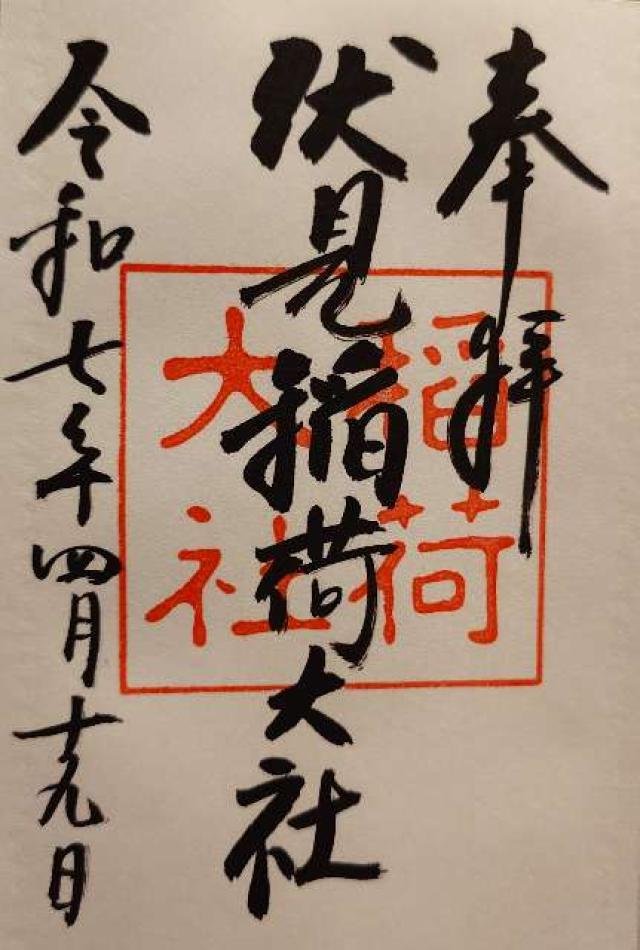 奉拝
伏見稲荷大社
稲荷
大社
令和七年四月十九日